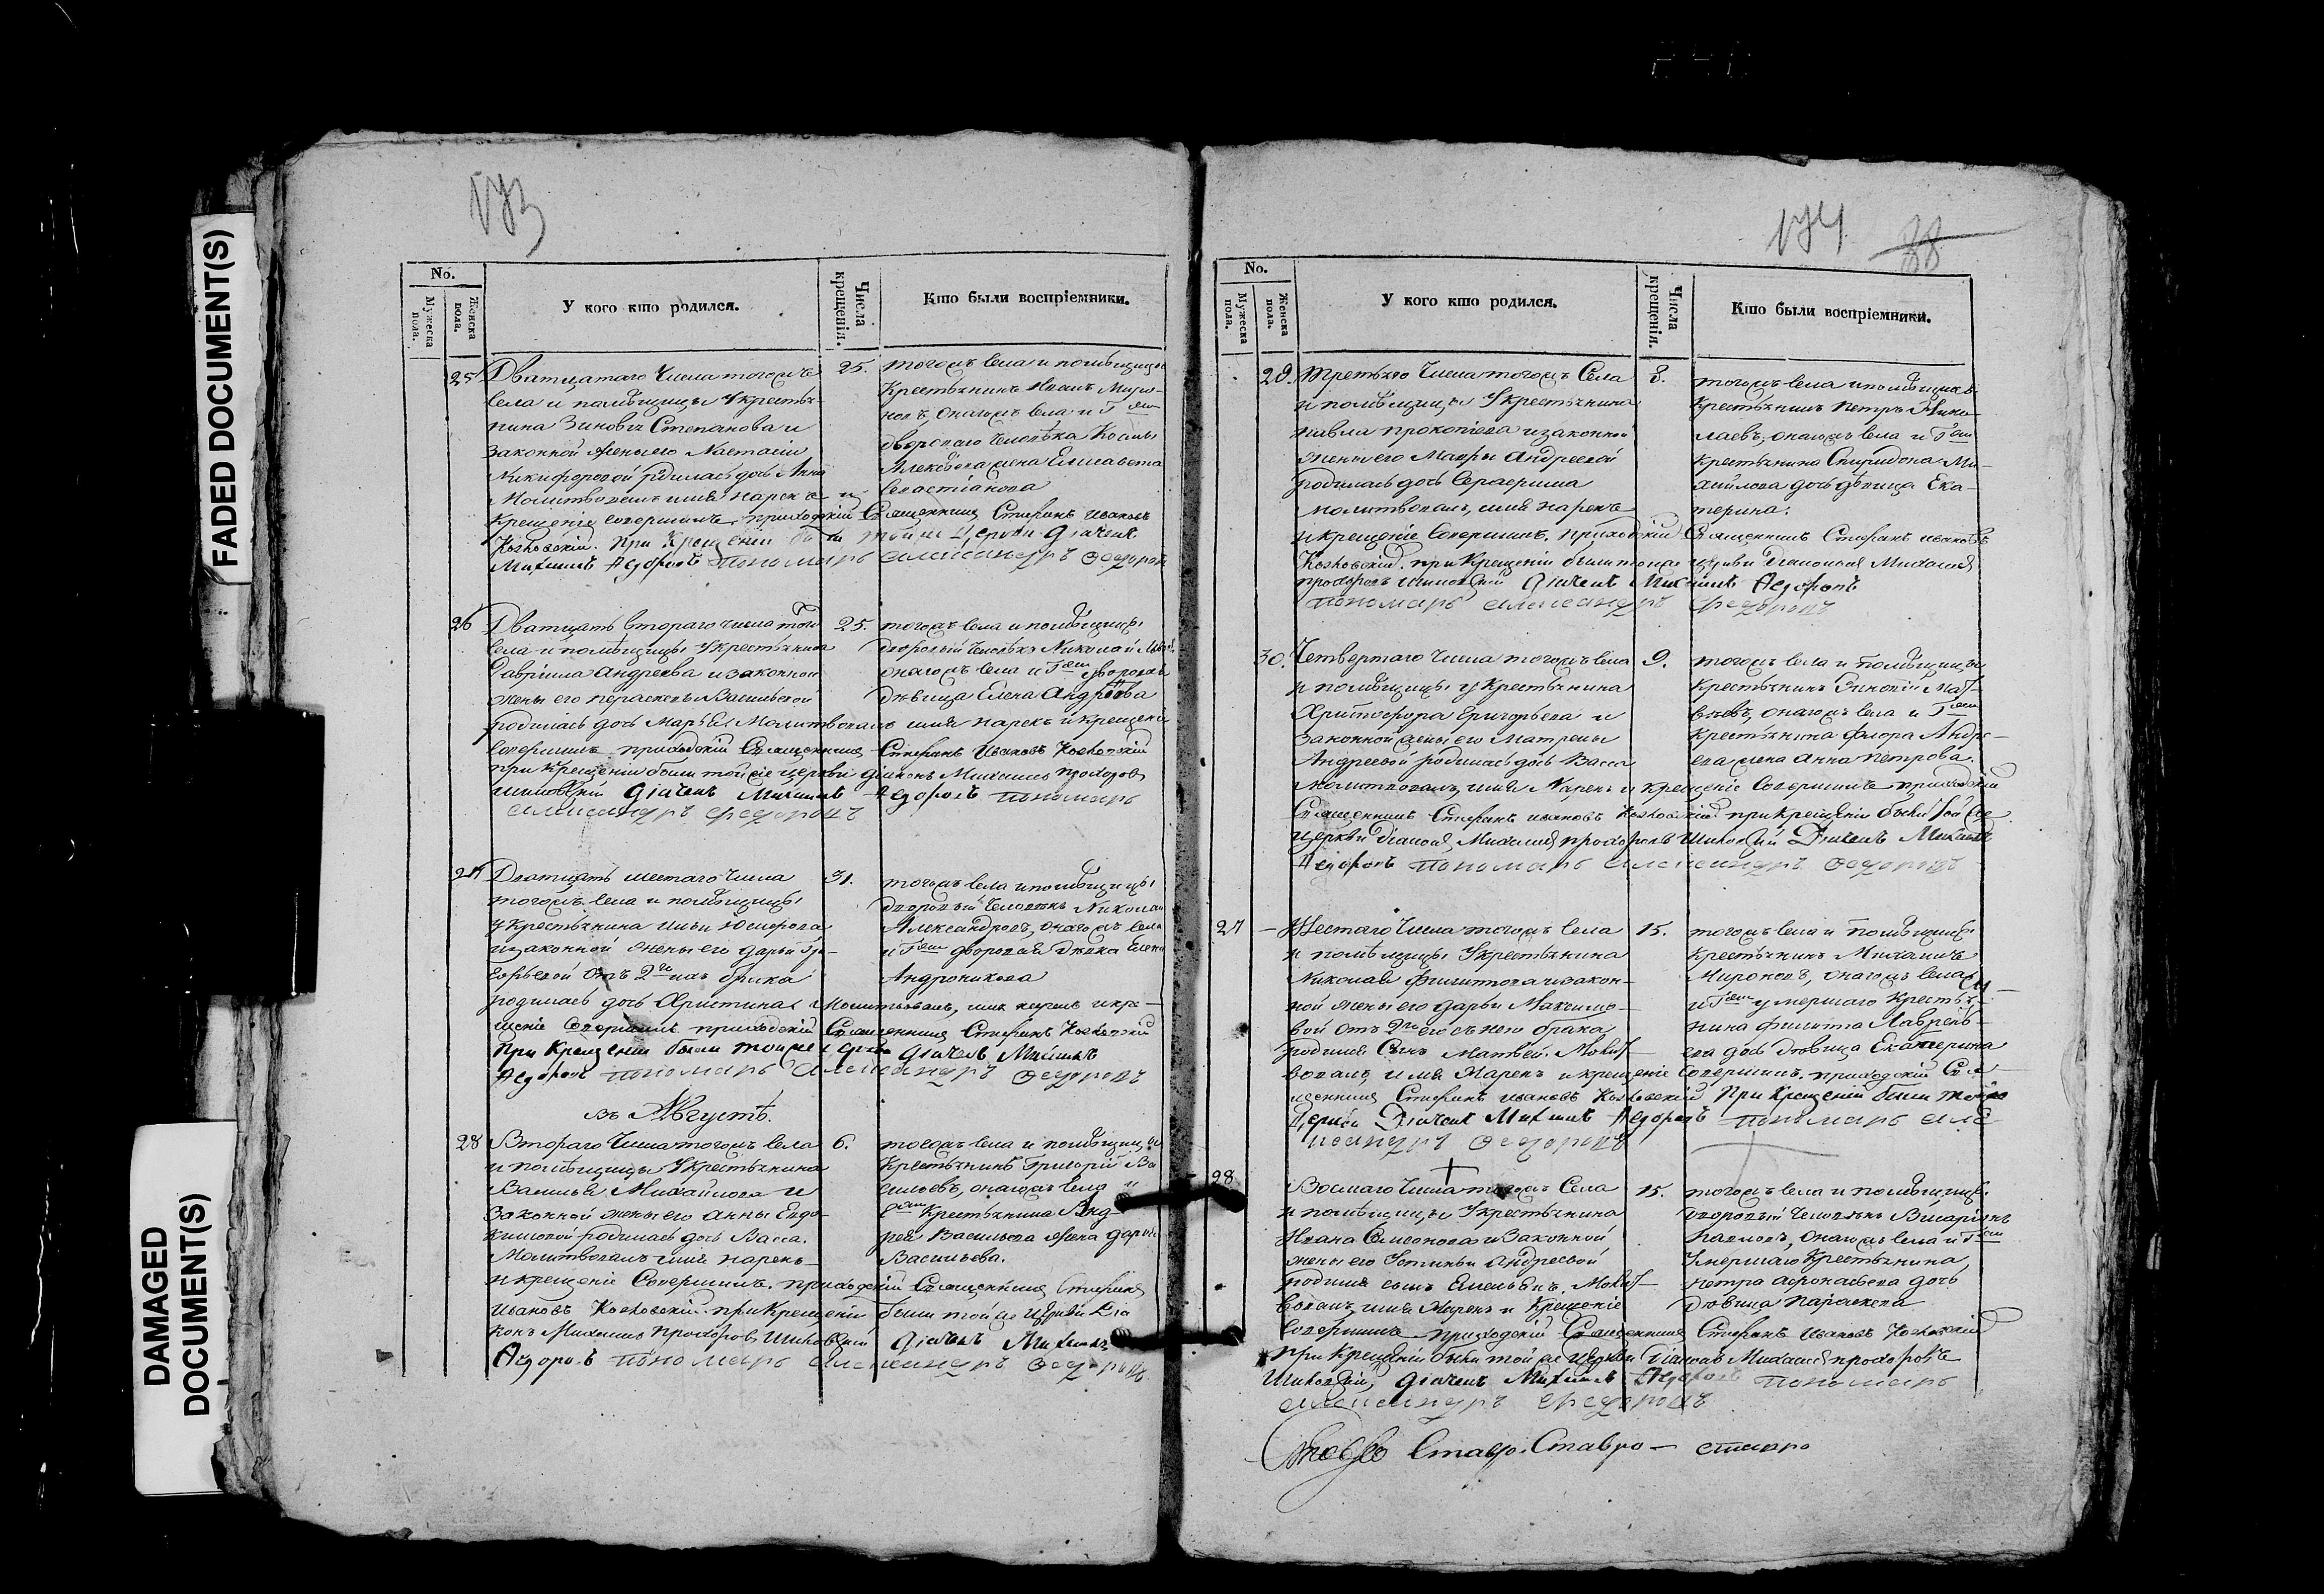 FADED DOCUMENT(S)
DAMAGED
DOCUMENT(S)
173
No.
Мужеска пола.
Женска пола.
У кого кто родился.
Числа крещенія.
Кто были воспріемники.
25
Дватцатаго Числа тогожъ
села и помѣщицы Укрестья-
нина Зиновья Степанова и
законной жены его Настасіи
Никифоровой родилась дочь Анна
Молитвовалъ имя нарекъ и
крещеніе совершилъ приходскій Священникъ Стефанъ Ивановъ
При Крещеніи были той же Церкви Дьячекъ
Михаилъ Ѳедоровъ пономарь Александръ Ѳедоровъ
25.
тогожъ села и помѣщицы
Крестьянинъ Иванъ Миро-
новъ, онагожъ села и Г
двороваго человѣка Козмы
Алексѣева жена Елисавета
Севастіанова
26
Дватцать втораго числа того
села и помѣщицы Укрестьянина
Гавріила Андреева и законной
жены его Параскевы Васильевой
родилась дочь Марья Молитвовалъ имя нарекъ и крещеніе
совершилъ приходскій Священникъ Стефанъ Ивановъ
при крещеніи были той же церкви Діаконъ Михаилъ Прохоровъ
Дьячекъ Михаилъ Ѳедоровъ пономарь
Александръ Ѳедоровъ
25.
тогожъ села и помѣщицы
дворовый человѣкъ Николай
онагожъ села и Г дворовая
дѣвица Елена Андреева
27
Дватцать шестаго Числа
тогожъ села и помѣщицы
у Крестьянина Ильи
и законной жены его Дарьи Гри-
горьевой отъ 2го брака
родилась дочь Христина Молитвовалъ, имя нарекъ и кре-
щеніе совершилъ приходскій Священникъ Стефанъ
При Крещеніи были той же Церкви Дьячекъ Михаилъ
Ѳедоровъ пономарь Александръ Ѳедоровъ
31.
тогожъ села и помѣщицы
дворовый человѣкъ Николай
Александровъ, онагожъ села
и Г дворовая дѣвка Елена
Андроникова
въ Августѣ.
28
Втораго Числа тогожъ села
и помѣщицы Укрестьянина
Василья Михайлова и
законной жены его Анны Евдо-
кимовой родилась дочь Васса.
Молитвовалъ имя нарекъ
и крещеніе Совершилъ приходскій Священникъ Стефанъ
Ивановъ при Крещеніи были той же Церкви Діа
конъ Михаилъ Прохоровъ Дьячекъ Михаилъ
Ѳедоровъ пономарь Александръ Ѳедоровъ
6.
тогожъ села и помѣщицы
Крестьянинъ Григорій Ва
сильевъ, онагожъ села и
Г Крестьянина Анд-
рея Васильева жена Дарья
Васильева.
174
88
No.
Мужеска пола.
Женска пола.
У кого кто родился.
Числа крещенія.
Кто были воспріемники.
29.
Третьяго Числа тогожъ Села
и помѣщицы Укрестьянина
Павла Прокопіева и законной
жены его Мавры Андреевой
родилась дочь Серафима
молитвовалъ, имя нарекъ
и крещеніе Совершилъ приходскій Священникъ Стефанъ Ивановъ
при Крещеніи были той же церкви Діаконъ Михаилъ
Прохоровъ Дьячекъ Михаилъ Ѳедоровъ
пономарь Александръ Ѳедоровъ
8.
тогожъ села и помѣщицы
Крестьянинъ Петръ Нико-
лаевъ, онагожъ села и Г
крестьянина Спиридона Ми-
хайлова дочь дѣвица Ека-
терина.
30.
Четвертаго Числа тогожъ села
и помѣщицы у Крестьянина
Христофора Григорьева и
законной жены его Матрены
Андреевой родилась дочь Васса
Молитвовалъ, имя Нарекъ и крещеніе Совершилъ приходскій
Священникъ Стефанъ Ивановъ при крещеніи были той же
церкви Діаконъ Михаилъ Прохоровъ Дьячекъ Михаилъ
Ѳедоровъ пономарь Александръ Ѳедоровъ
9.
тогожъ села и помѣщицы
Крестьянинъ Зиновій Мат-
вѣевъ, онагожъ села и Г
Крестьянина Флора Андре-
ева жена Анна Петрова.
27
Шестаго Числа тогожъ села
и помѣщицы Укрестьянина
Николая Филиппова и закон-
ной жены его Дарьи Максимо-
вой отъ 2го его съ нею брака
родился Сынъ Матвей. Молит-
вовалъ, имя Нарекъ и крещеніе Совершилъ приходскій Свя-
щенникъ Стефанъ Ивановъ При Крещеніи были той же
Церкви Дьячекъ Михаилъ Ѳедоровъ пономарь Але
ксандръ Ѳедоровъ
15.
тогожъ села и помѣщицы
Крестьянинъ Михаилъ
Мироновъ, онагожъ села
и Г умершаго Крестья-
нина Филиппа Лаврень-
ева дочь дѣвица Екатерина
28
Восмаго Числа тогожъ Села
и помѣщицы Укрестьянина
Ивана Симеонова и Законной
жены его Устиньи Андреевой
родился сынъ Емельянъ. Молит-
вовалъ имя Нарекъ и Крещеніе
Совершилъ приходскій Священникъ Стефанъ Ивановъ
При Крещеніи были той же Церкви Діаконъ Михаилъ Прохоровъ
Дьячекъ Михаилъ Ѳедоровъ пономарь
Александръ Ѳедоровъ
15.
тогожъ села и помѣщицы
дворовый человѣкъ Виссаріонъ
Павловъ, онагожъ села и Г
Умершаго Крестьянина
Петра Афонасьева дочь
дѣвица Параскева